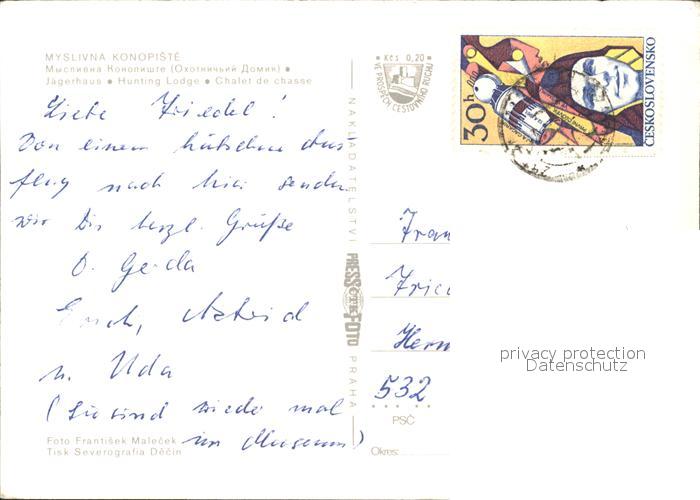 MYSLIVNA KONOPIŠTĚ
Мысливна Конопиште (Охотничьий Домик) •
Jägerhaus • Hunting Lodge • Chalet de chasse
Liebe Friedel!
Von einem hübschen Aus
flug nach hier senden
wir Dir herzl. Grüße
O. Gerda
Erich, Astrid
u. Uda
(Sie sind wieder mal
im Museum)
Foto František Maleček
Tisk Severografia Děčín
NAKLADATELSTVÍ PRESSFOTO PRAHA
Kčs 0,20
VE PROSPĚCH CESTOVNÍHO RUCHU
30 h
ČESKOSLOVENSKO
Fran
Frie
Herm
532
PSČ
Okres:
privacy protection
Datenschutz